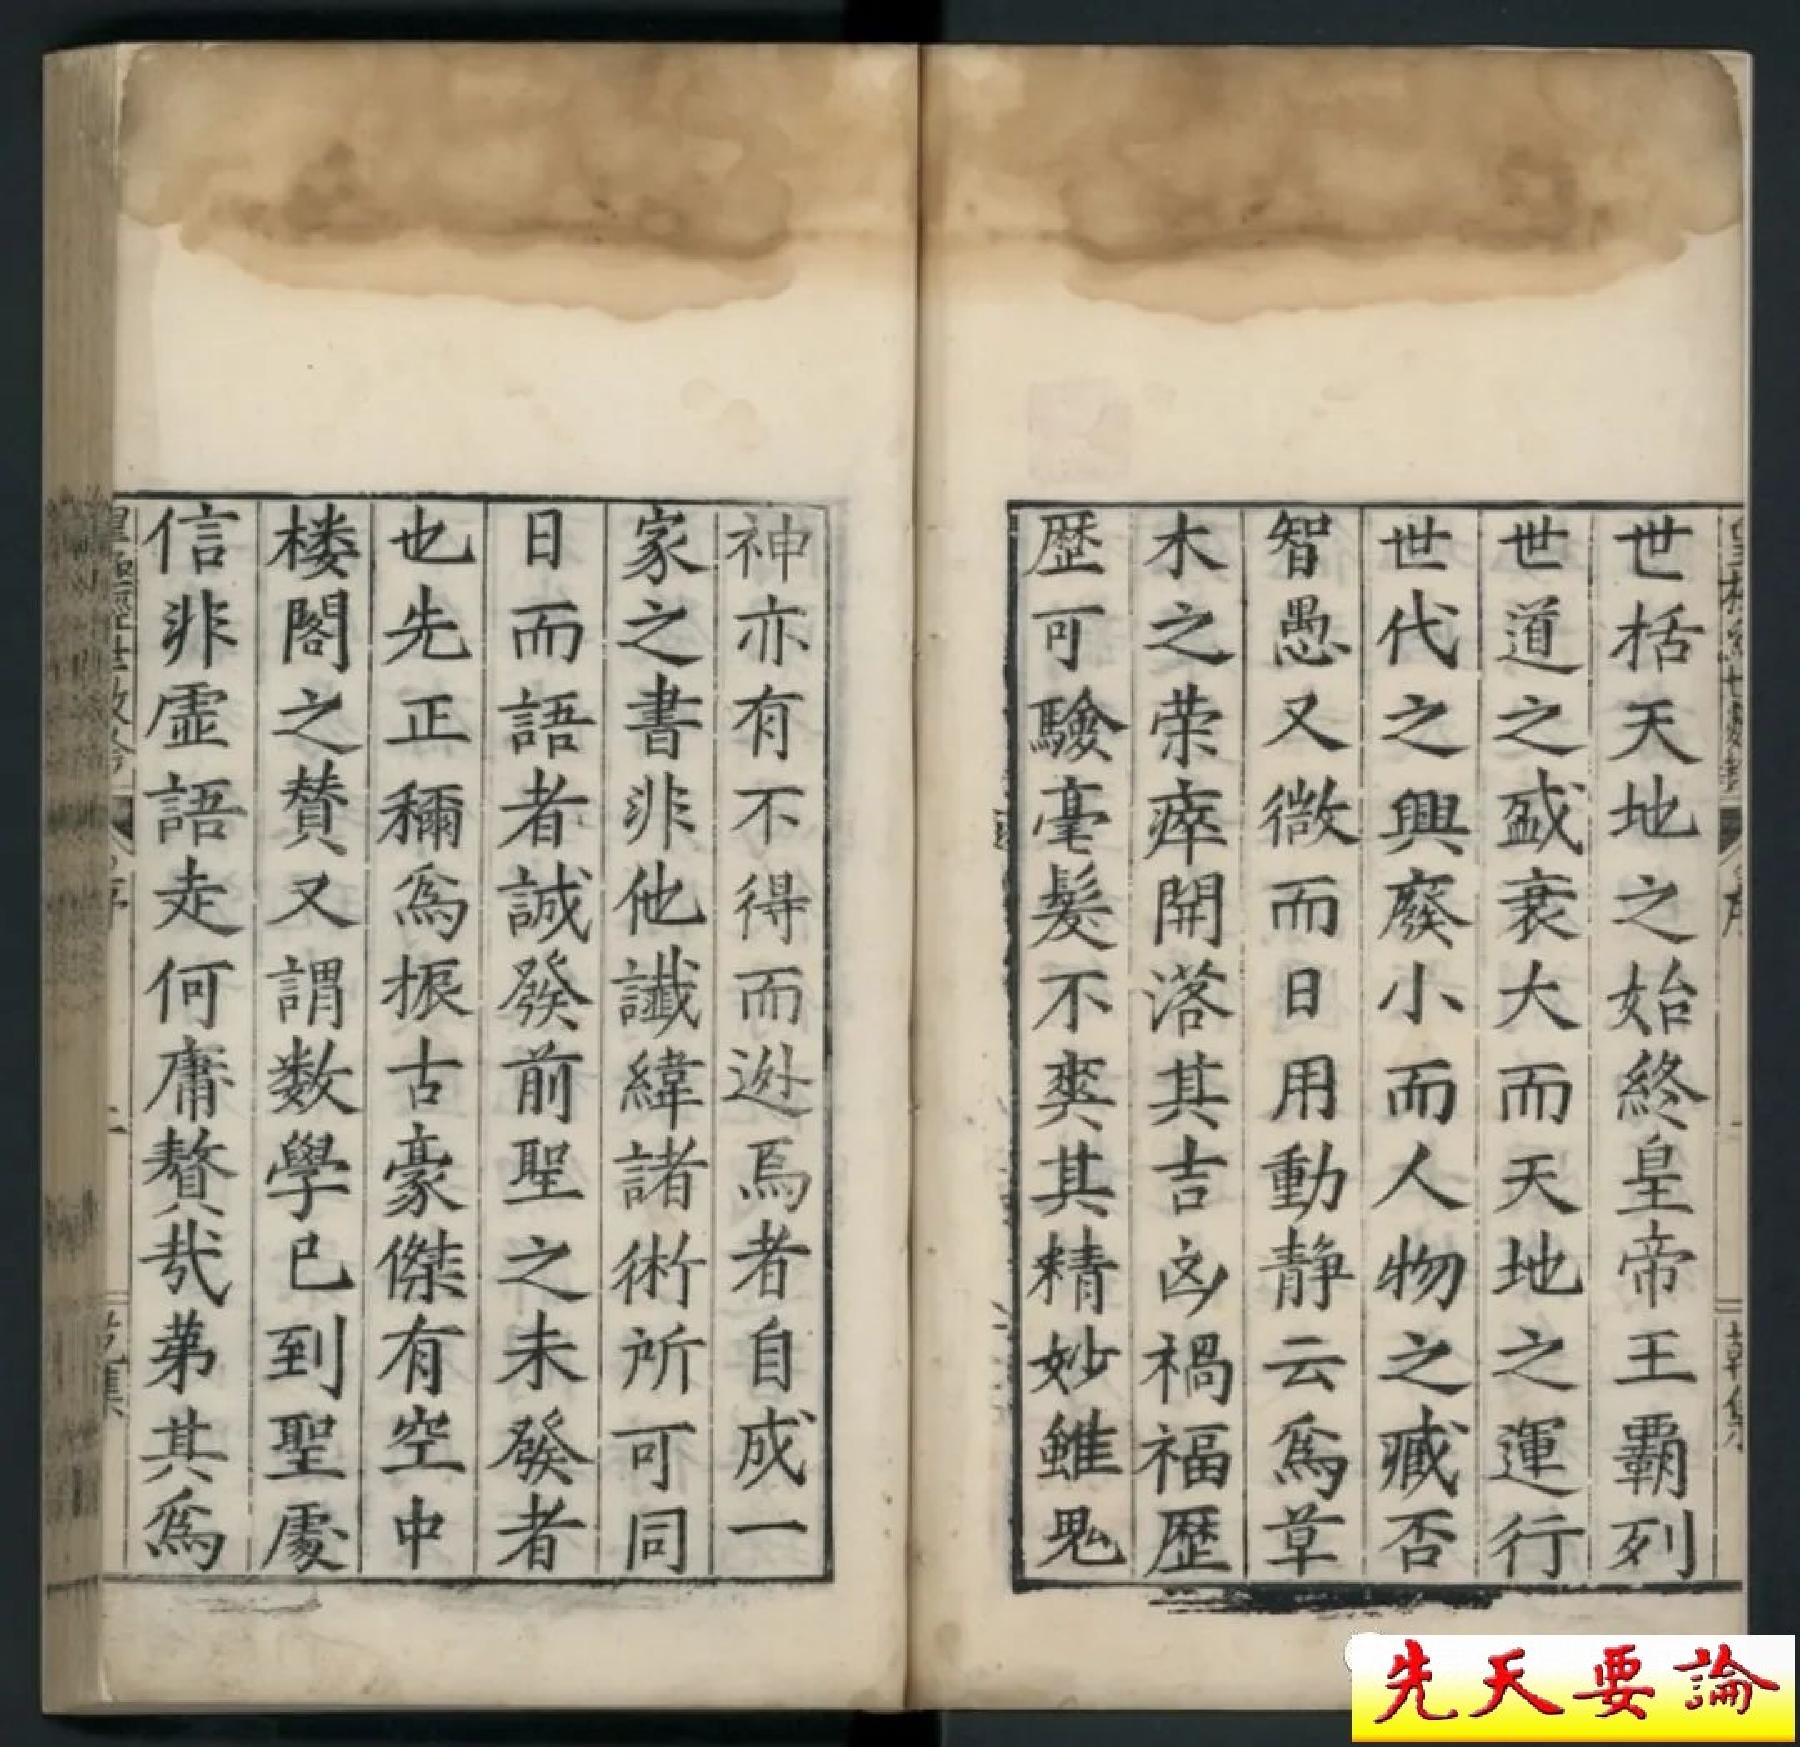 世括天地之始終皇帝王覇列
世道之盛衰大而天地之運行
世代之興廢小而人物之臧否
智愚又微而日用動静云爲草
木之荣瘁開落其吉凶禍福歴
歴可驗毫髮不爽其精妙雖鬼
神亦有不得而逃焉者自成一
家之書非他讖緯諸術所可同
日而語者誠發前聖之未發者
也先正稱爲振古豪傑有空中
楼閣之賛又謂数學已到聖處
信非虚語走何庸贅哉苐其爲
乾集
先天要論